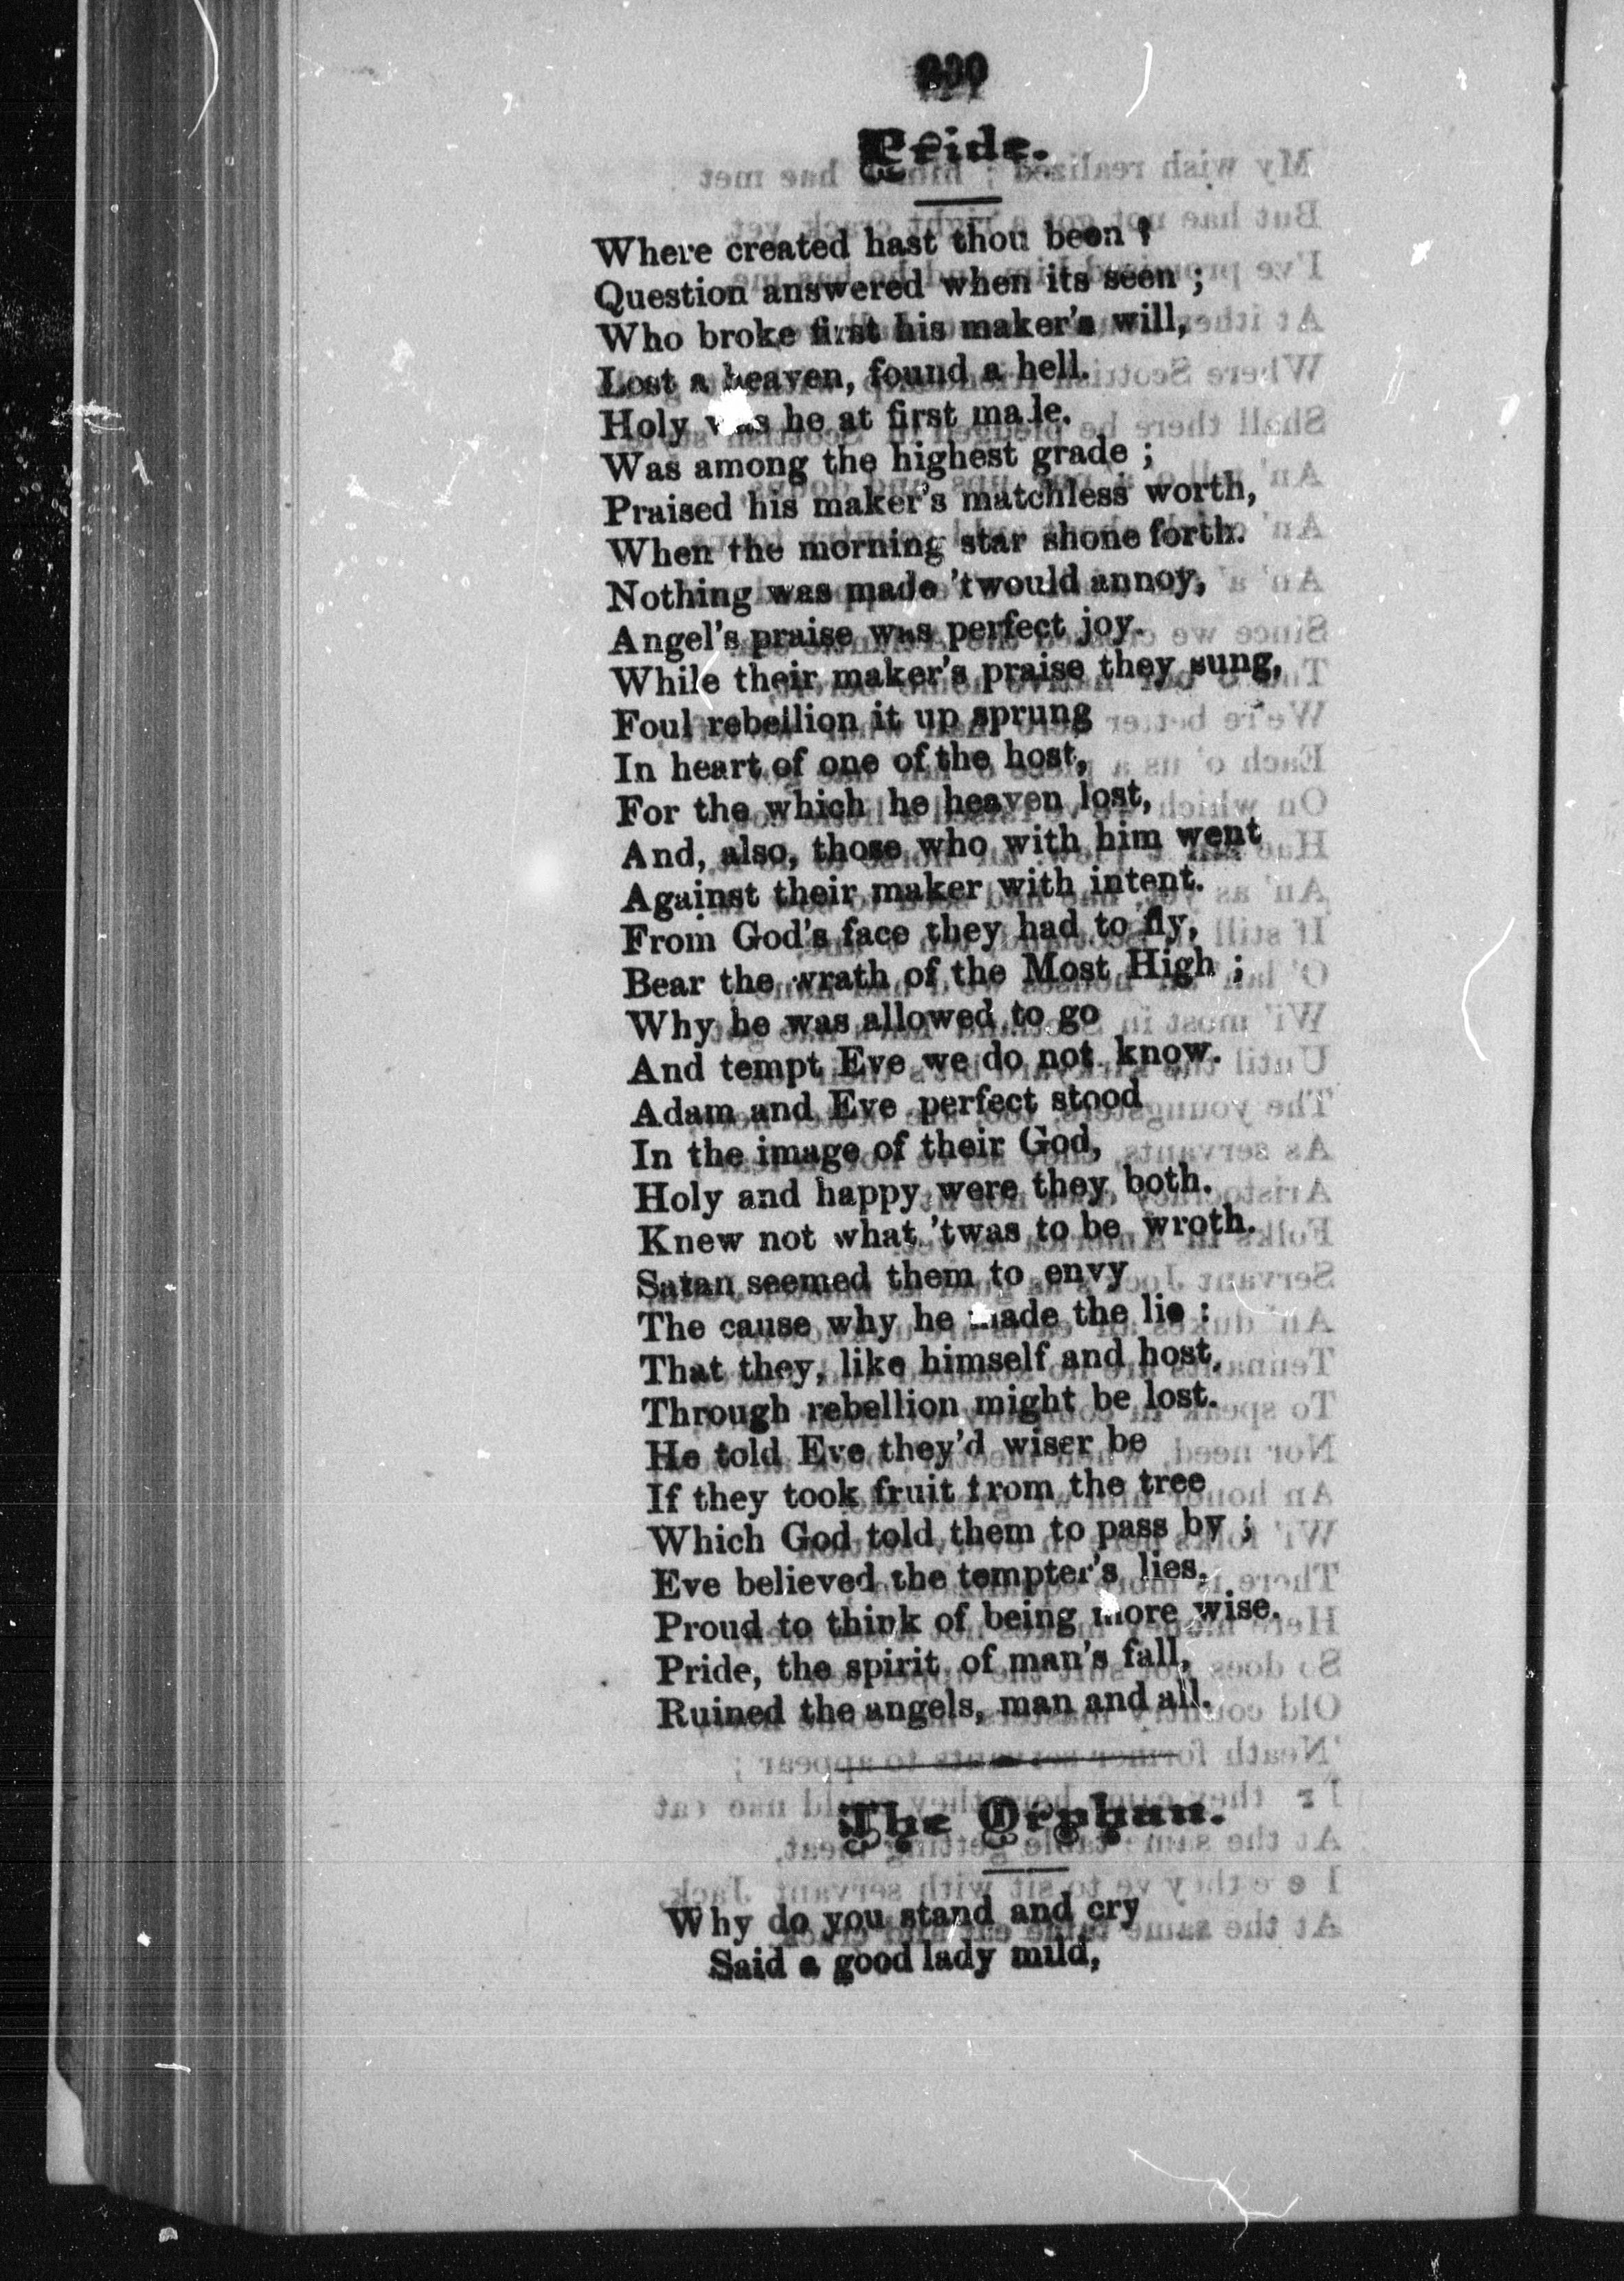 Pride.
Where created hast thou been ?
Question answered when its seen ;
Who broke first his maker's will,
Lost a heaven, found a hell.
Holy was he at first made.
Was among the highest grade ;
Praised his maker's matchless worth,
When the morning star shone forth.
Nothing was made 'twould annoy,
Angel's praise was perfect joy.
While their maker's praise they sung,
Foul rebellion it up sprung
In heart of one of the host,
For the which he heaven lost,
And, also, those who with him went
Against their maker with intent.
From God's face they had to fly,
Bear the wrath of the Most High ;
Why he was allowed to go
And tempt Eve we do not know.
Adam and Eve perfect stood
In the image of their God,
Holy and happy were they both.
Knew not what 'twas to be wroth.
Satan seemed them to envy
The cause why he made the lie :
That they, like himself and host,
Through rebellion might be lost.
He told Eve they'd wiser be
If they took fruit from the tree
Which God told them to pass by ;
Eve believed the tempter's lies,
Proud to think of being more wise.
Pride, the spirit of man's fall,
Ruined the angels, man and all.
The Orphan.
Why do you stand and cry
Said a good lady mild,